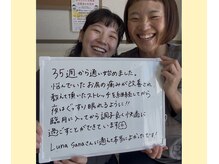 35週から通い始めました。
悩んでいたお尻の痛みが改善され
教えて頂いたストレッチを継続してから
夜はぐっすり眠れるように!!
臨月入ってからも調子良く快適に
過ごすことができています
Luna Sanaさんに通えて本当によかったです!